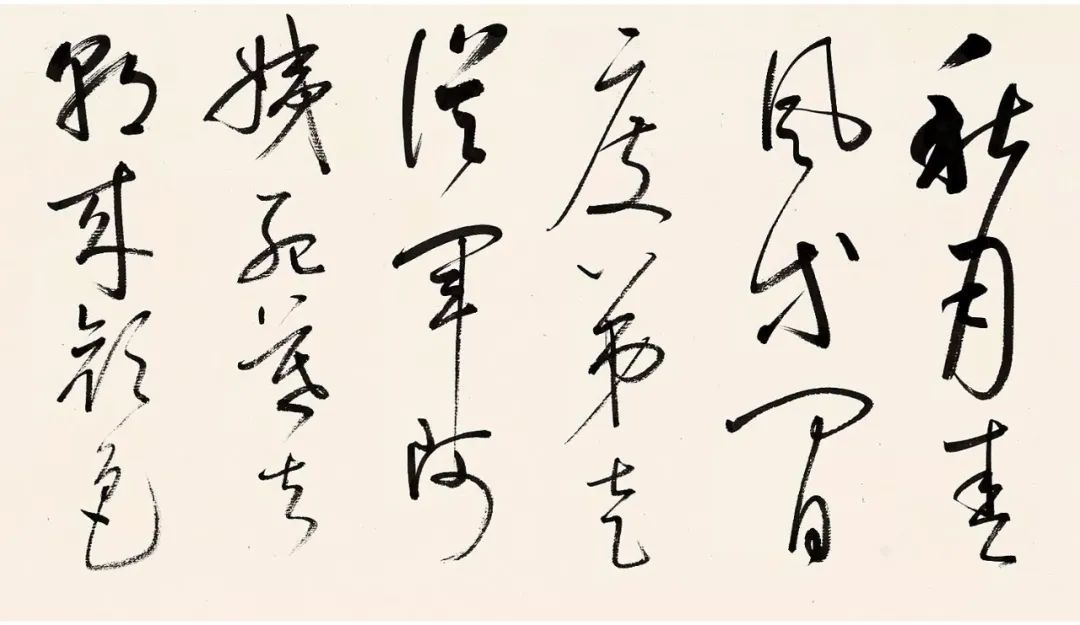 秋月春
風等閒
度弟走
從軍阿
姨死暮去
朝來顏色